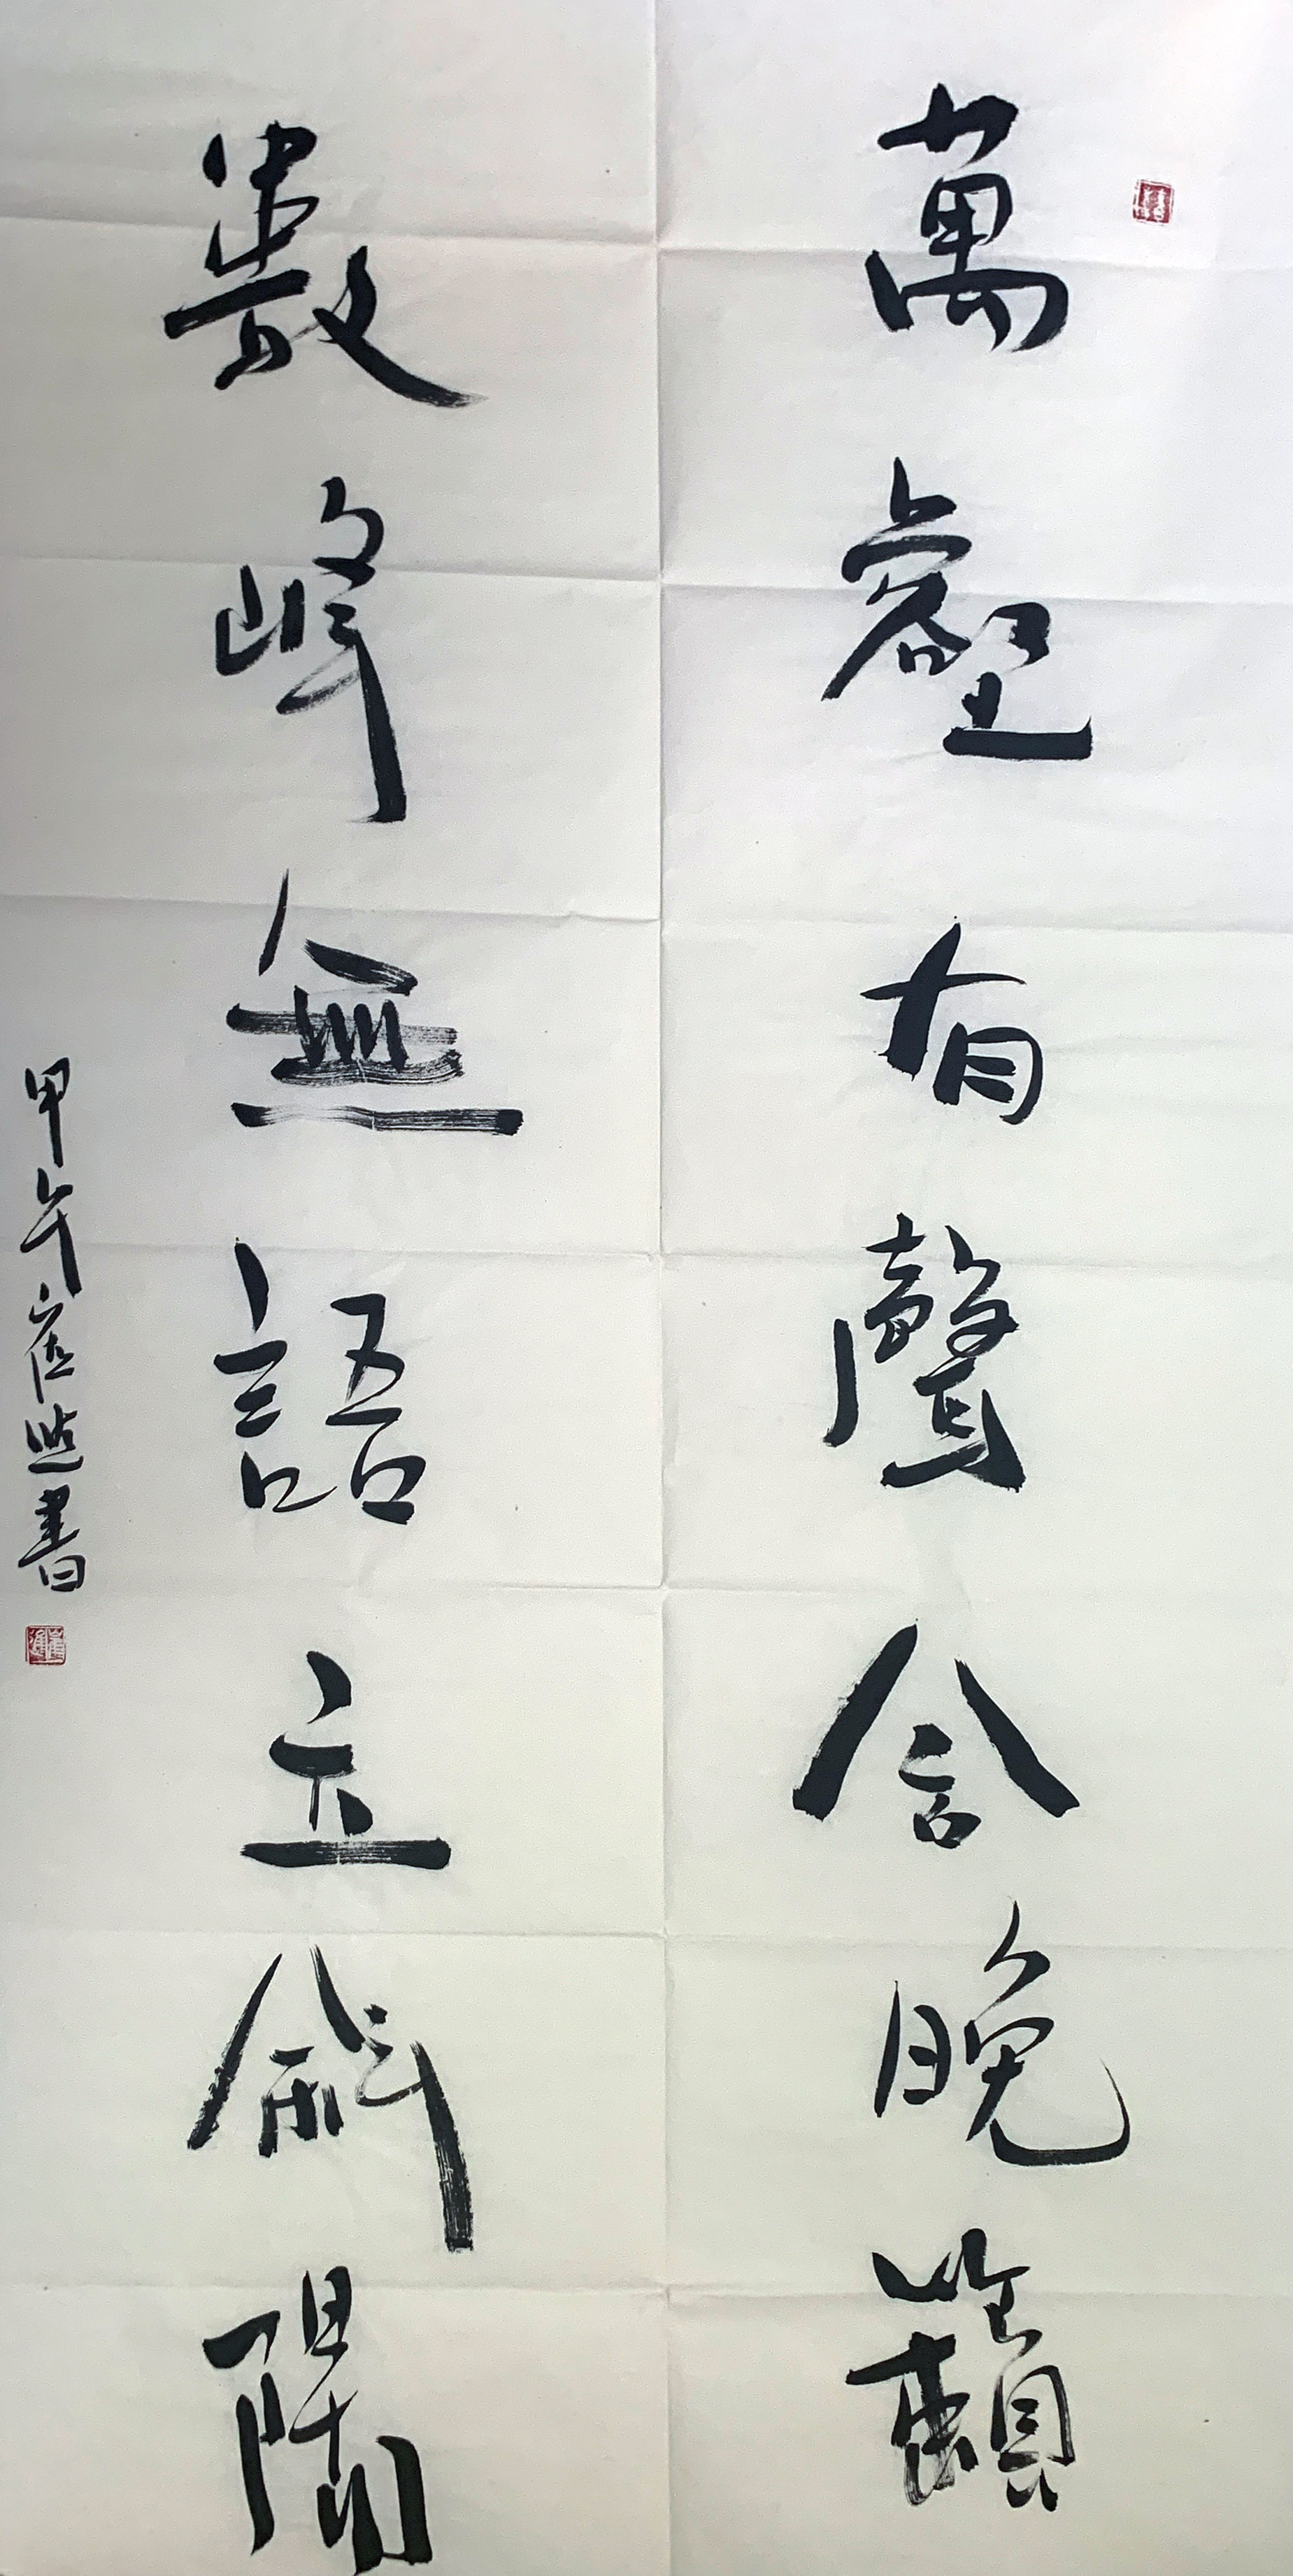 萬壑有聲含晚籟
數峰無語立斜陽
甲午崔進書